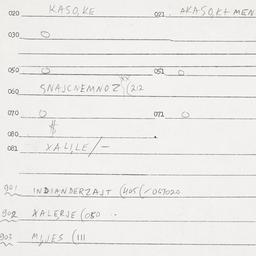 020 KASO,KE 021 AKASO,KE MEN
030 O
050 O 051 O
060 SNAJCNEMNOZ xx (212
070 O 071 O
080
081 XALILE/-
901 INDIANDERZAJT (405(/067020
902 XALERJE (080
903 MI,JES (111